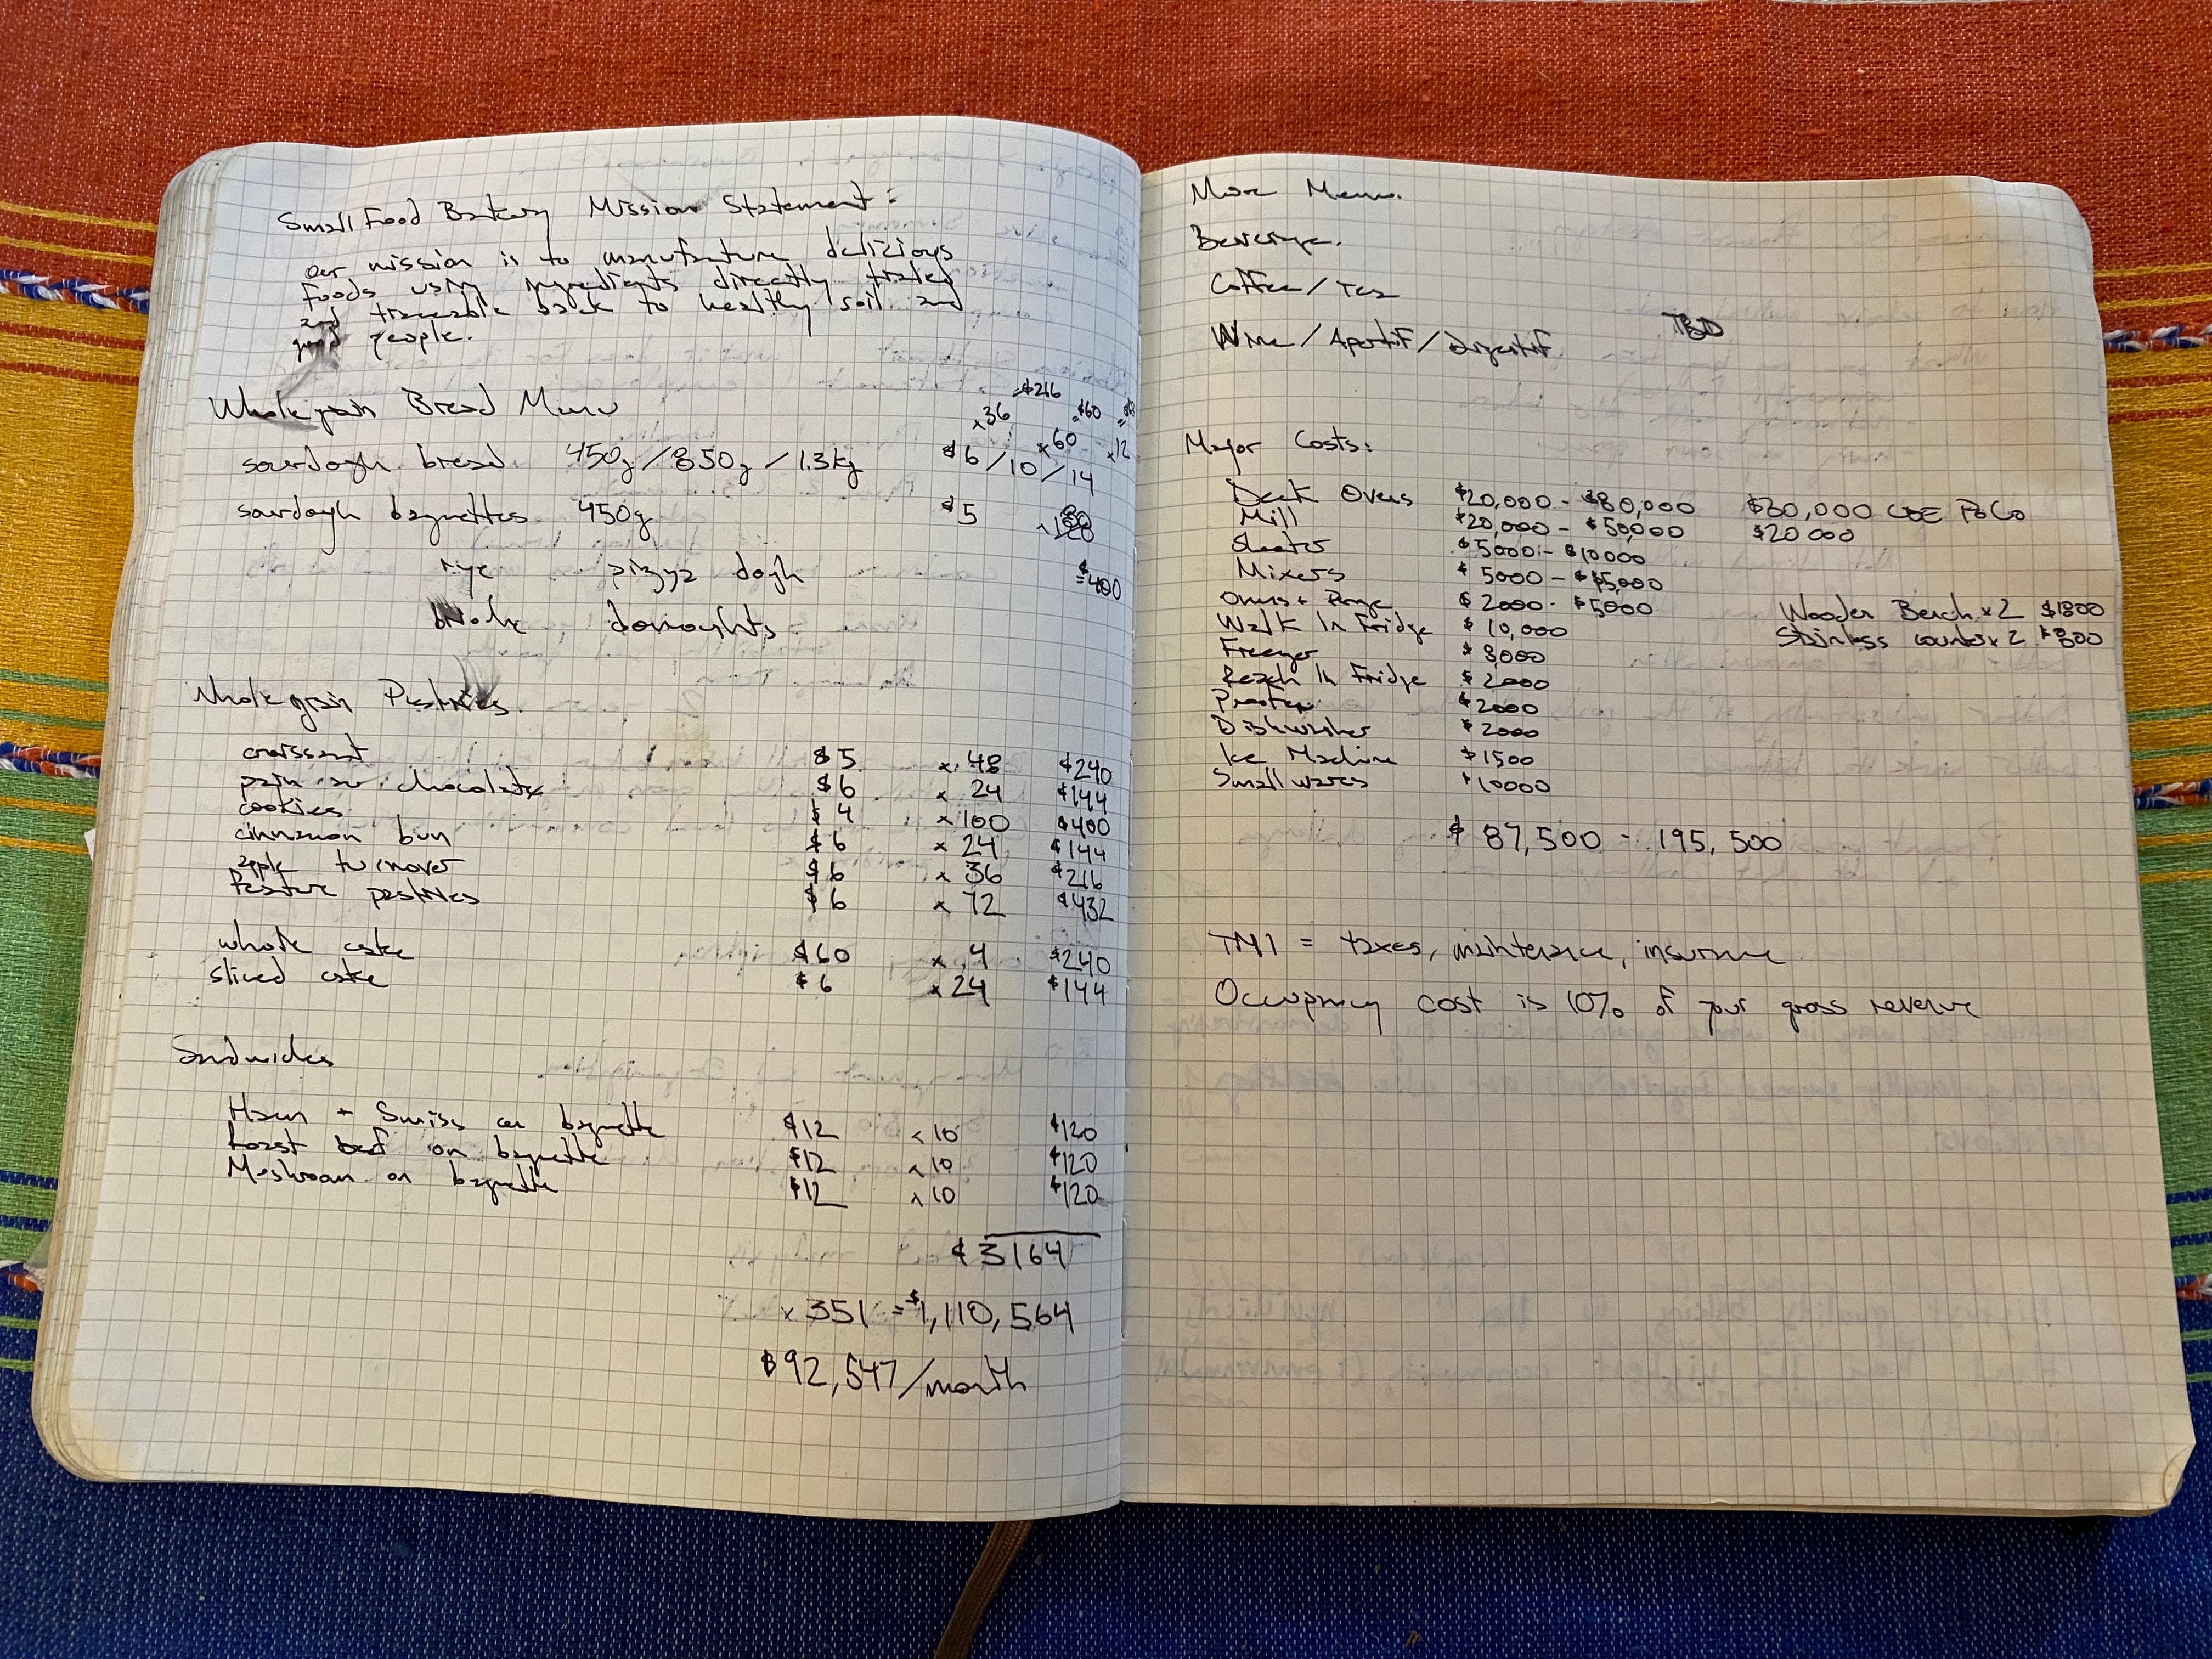 Small Food Bakery Mission Statement:
Our mission is to manufacture delicious
foods using ingredients directly traded
and traceable back to healthy soil and
good people.
Whole grain Bread Menu
=$216
x36 =$60
x60 x12
sourdough bread 450g/850g/1.3kg $6/10/14
sourdough baguettes 450g $5
rye pizza dogh
=$400
donoughts
Whole grain Pastries
croissant $5 x 48 $240
pain au chocolate $6 x 24 $144
cookies $4 x 100 $400
cinnamon bun $6 x 24 $144
apple turnover $6 x 36 $216
feature pastries $6 x 72 $432
whole cake $60 x 4 $240
sliced cake $6 x 24 $144
Sandwiches
Ham + Swiss on baguette $12 x 10 $120
Roast beef on baguette $12 x 10 $120
Mushroom on baguette $12 x 10 $120
$3164
x 351 = $1,110,564
$92,547/month
More Menu.
Beverage.
Coffee/Tea
Wine/Apertif/Digestif TBD
Major Costs:
Deck Ovens $20,000 - $80,000 $30,000 USE
Mill $20,000 - $50,000 $20000
Sheeter $5000 - $10000
Mixers $5000 - $15,000
Ovens + Range $2000 - $5000 Wooden Bench x2 $1800
Walk In Fridge $10,000 Stainless counter x2 $800
Freezer $8,000
Reach In Fridge $2000
Proofer $2000
Dishwasher $2000
Ice Machine $1500
Smallwares $10000
$87,500 - 195,500
TMI = taxes, maintenance, insurance
Occupancy cost is 10% of your gross revenue